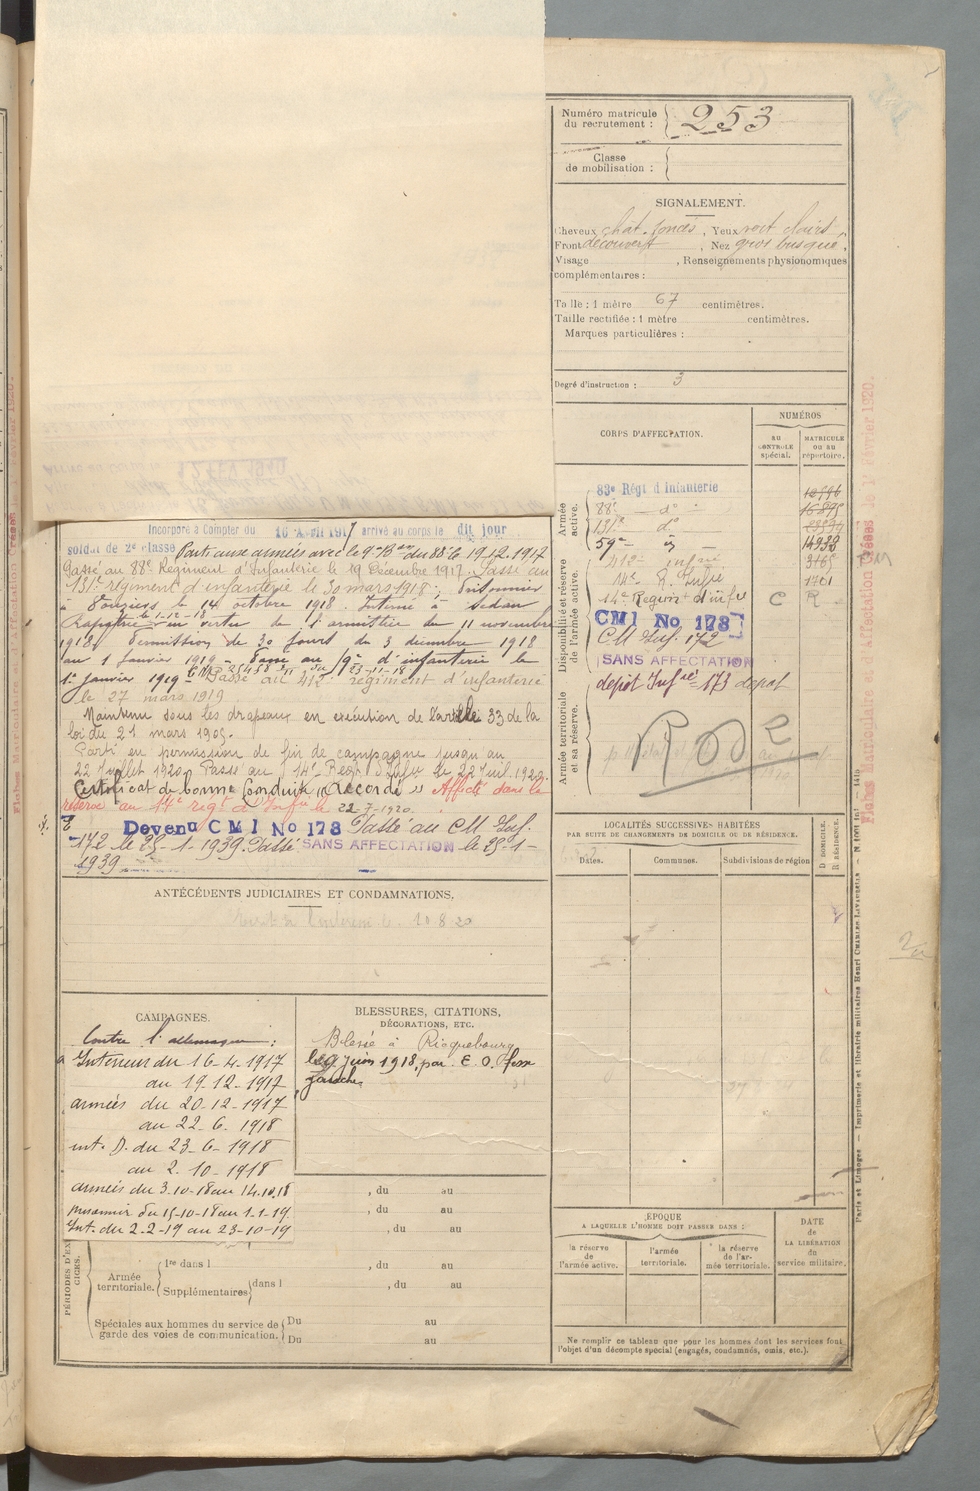 Numéro matricule
du recrutement : 253
Classe
de mobilisation :
SIGNALEMENT.
Cheveux chât. foncés, Yeux vert clairs,
Front découvert, Nez gros busqué,
Visage , Renseignements physionomiques
complémentaires :
Taille : 1 mètre 67 centimètres.
Taille rectifiée : 1 mètre centimètres.
Marques particulières :
Degré d'instruction : 3
CORPS D'AFFECTATION.
NUMÉROS
AU CONTROLE spécial.
MATRICULE ou au répertoire.
Armée active.
83e Régt d'Infanterie
88e — do
131e do
59e
14932
Disponibilité et réserve de l'armée active.
412e infrie
3165
14e R. Infrie
14e Régiont d'infie C R
CMI No 173
CM Inf. 172
SANS AFFECTATION
Armée territoriale et sa réserve.
dépôt Infrie 173 dépôt
Incorporé à Compter du 16 Avril 1917 arrivé au corps le dit jour
soldat de 2e classe Parti aux armées avec le 9e Bon du 88e le 19.12.1917
Passé au 88e Régiment d'Infanterie le 19 Décembre 1917. Passé au
131e régiment d'infanterie le 30 mars 1918. Prisonnier
à Vouziers le 14 octobre 1918. Interné à Sedan
Rapatrié le 1-12-18 en vertu de l'armistice du 11 novembre
1918. Permission de 30 jours du 3 décembre 1918
au 1 janvier 1919. Passé au 59e d'infanterie le
1er janvier 1919 Passé au 412e régiment d'infanterie
le 27 mars 1919
Maintenu sous les drapeaux en exécution de l'article 33 de la
loi du 21 mars 1905.
Parti en permission de fin de campagne jusqu'au
22 Juillet 1920. Passé au 14e Régt d'Infie le 22 Juil. 1920.
Certificat de bonne Conduite "Accordé" Affecté dans la
réserve au 14e régt d'Infie le 22-7-1920.
Devenu CMI No 173 Passé au CM Inf.
172 le 25-1-1939. Passé SANS AFFECTATION le 25-1-
1939
ANTÉCÉDENTS JUDICIAIRES ET CONDAMNATIONS.
CAMPAGNES.
Contre l'allemagne :
Intérieur du 16-4-1917
au 19-12-1917
armées du 20-12-1917
au 22-6-1918
int. D. du 23-6-1918
au 2-10-1918
armées du 3-10-18 au 14.10.18
prisonnier du 15-10-18 au 1-1-19
Int. du 2-2-19 au 23-10-19
BLESSURES, CITATIONS,
DÉCORATIONS, ETC.
Blessé à Ricquebourg
le 9 juin 1918, par E. O. fesse
gauche
, du au
, du au
, du au
PÉRIODES D'EXERCICES.
Armée territoriale.
1re dans l , du au
Supplémentaires dans l , du au
Spéciales aux hommes du service de
garde des voies de communication.
Du au
Du au
LOCALITÉS SUCCESSIVES HABITÉES
PAR SUITE DE CHANGEMENTS DE DOMICILE OU DE RÉSIDENCE.
Dates. Communes. Subdivisions de région
D DOMICILE. R RÉSIDENCE.
ÉPOQUE
A LAQUELLE L'HOMME DOIT PASSER DANS :
la réserve de l'armée active.
l'armée territoriale.
la réserve de l'armée territoriale.
DATE de LA LIBÉRATION du service militaire.
Ne remplir ce tableau que pour les hommes dont les services font
l'objet d'un décompte spécial (engagés, condamnés, omis, etc.).
Paris et Limoges — Imprimerie et librairie militaires Henri CHARLES-LAVAUZELLE
Fiches Matriculaire et d'Affectation Créées le 1er Février 1920.